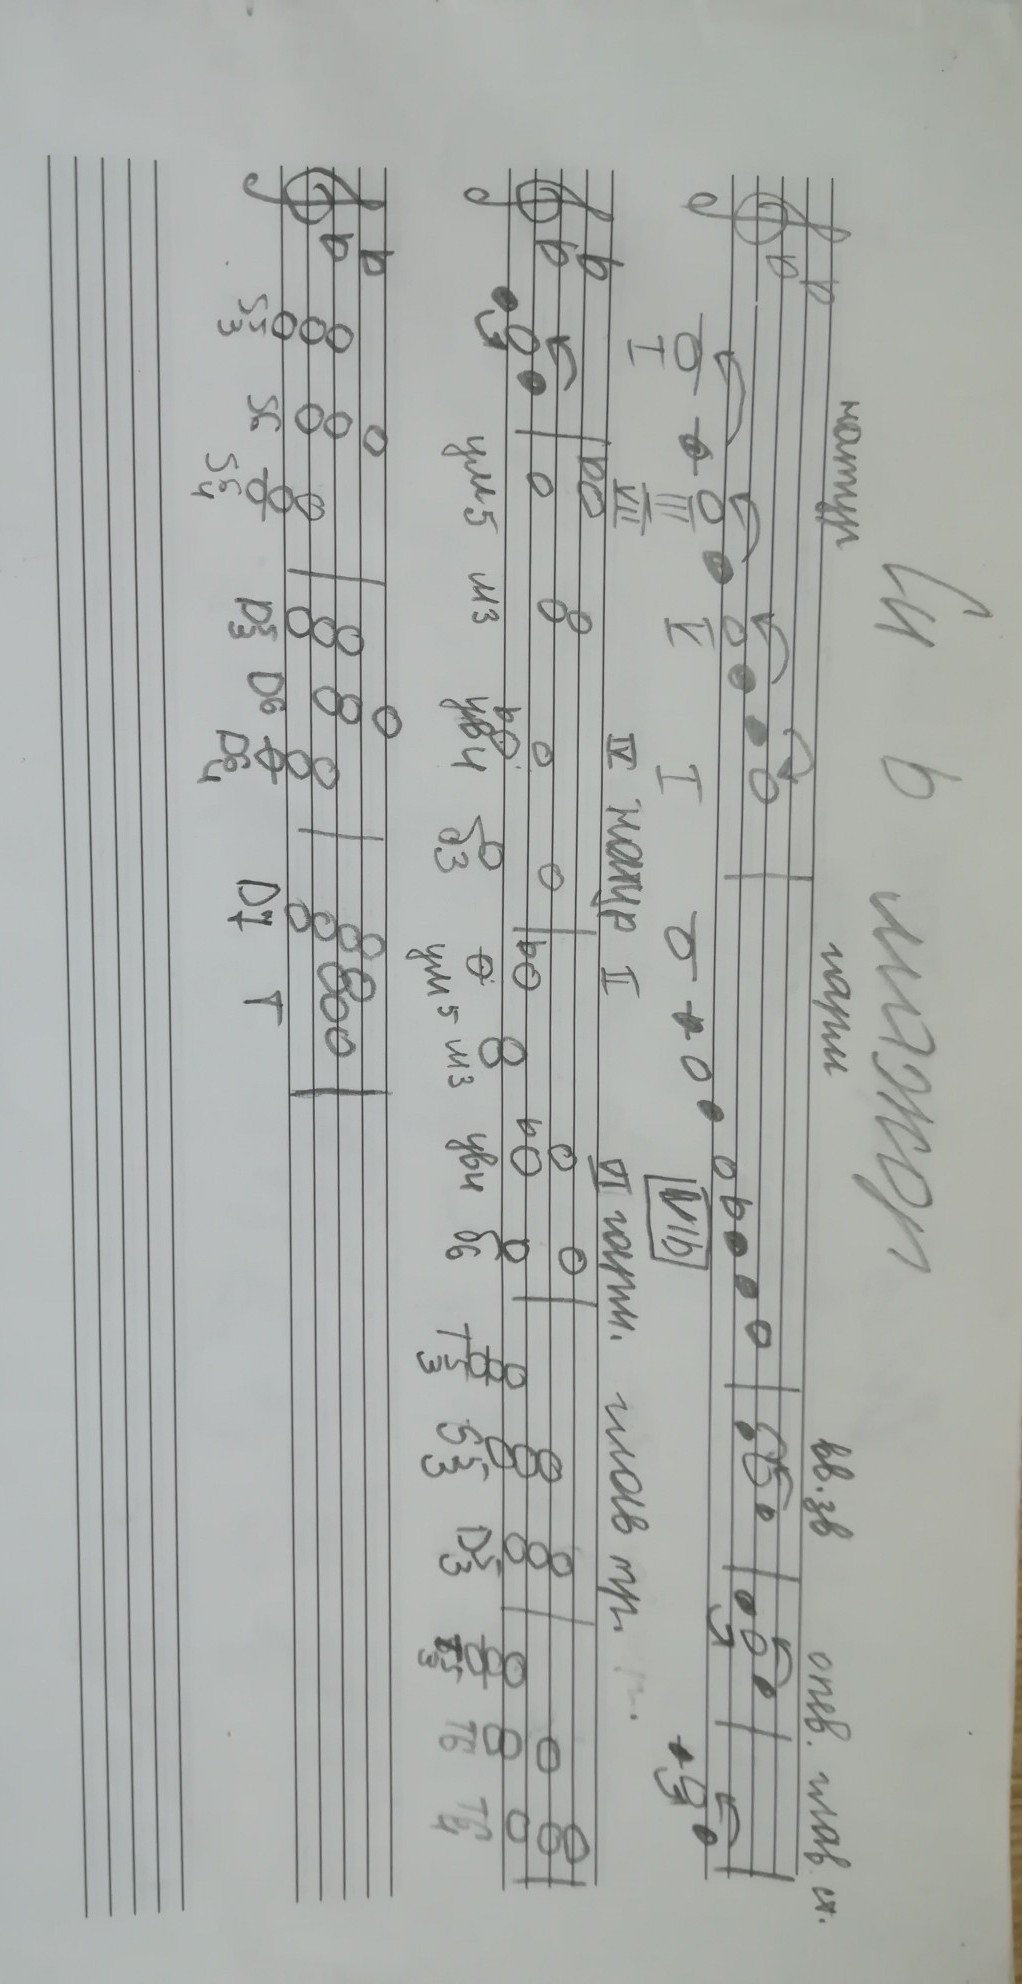 Си b мажор
натур гарм вв.зв опев. глав. ст.
I III V I VIb
VII IV натур II VI гарм. глав тр.
ум5 м3 ув4 б3 ум5 м3 ув4 б6 T53 S53 D53 T53 T6 T64
S53 S6 S64 D53 D6 D64 D7 T